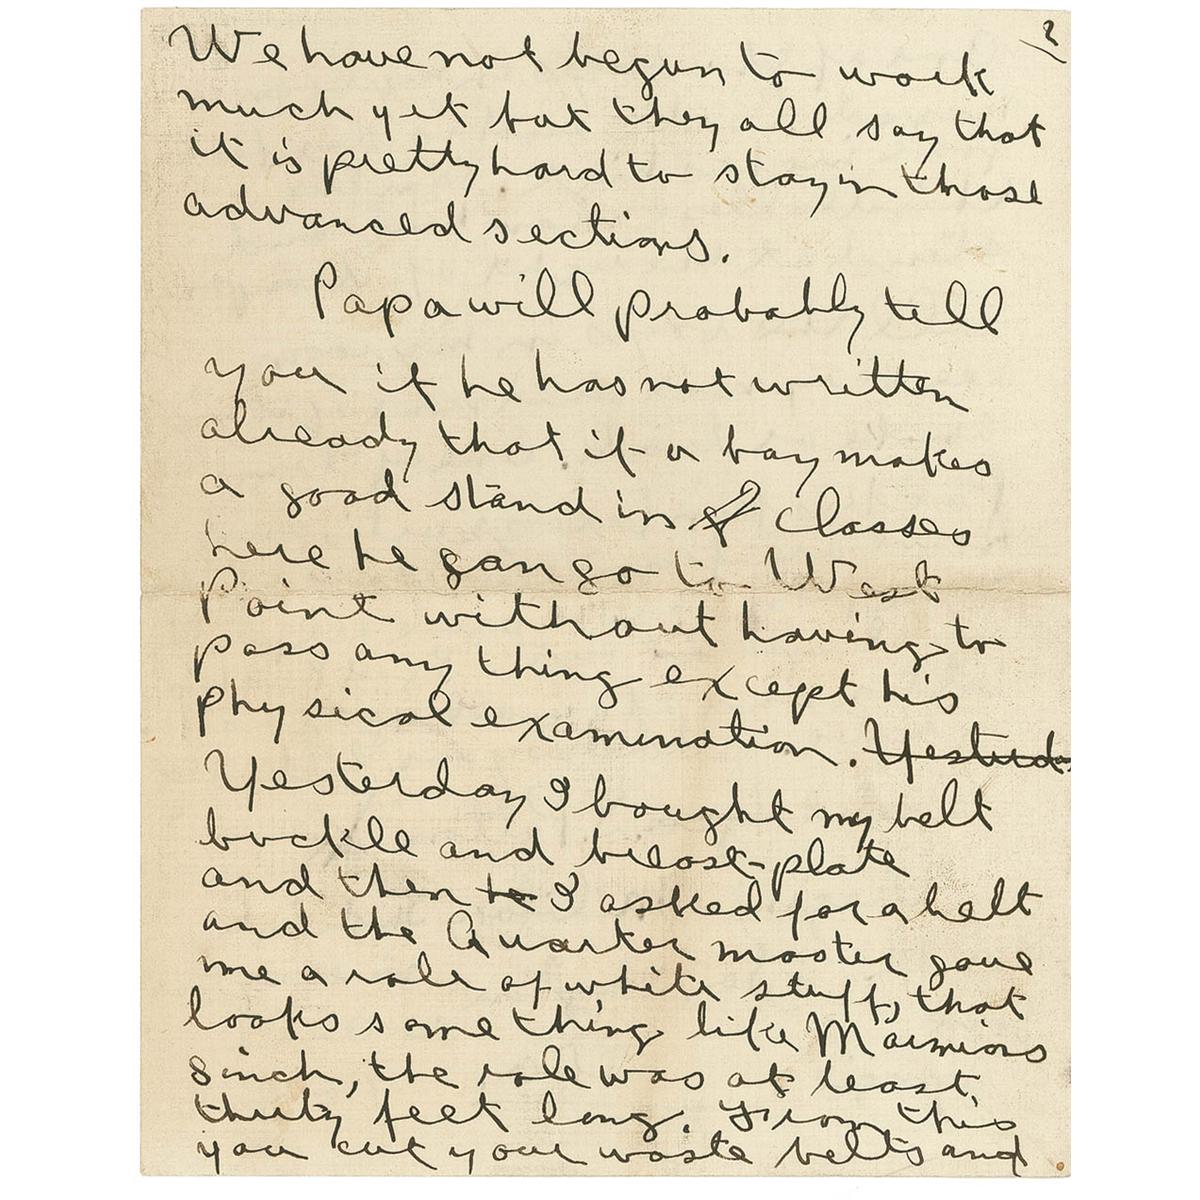 2
We have not begun to work
much yet but they all say that
it is pretty hard to stay in those
advanced sections.
Papa will probably tell
you if he has not written
already that if a boy makes
a good stand in classes
here he gan go to West
Point without having to
pass any thing except his
physical examination. Yesterda
Yesterday I bought my belt
buckle and breast-plate
and then to I asked for a belt
and the Quarter master gave
me a role of white stuff, that
looks something like Marmions
sinch, the role was at least
thirty feet long. From this
you cut your waste belts and